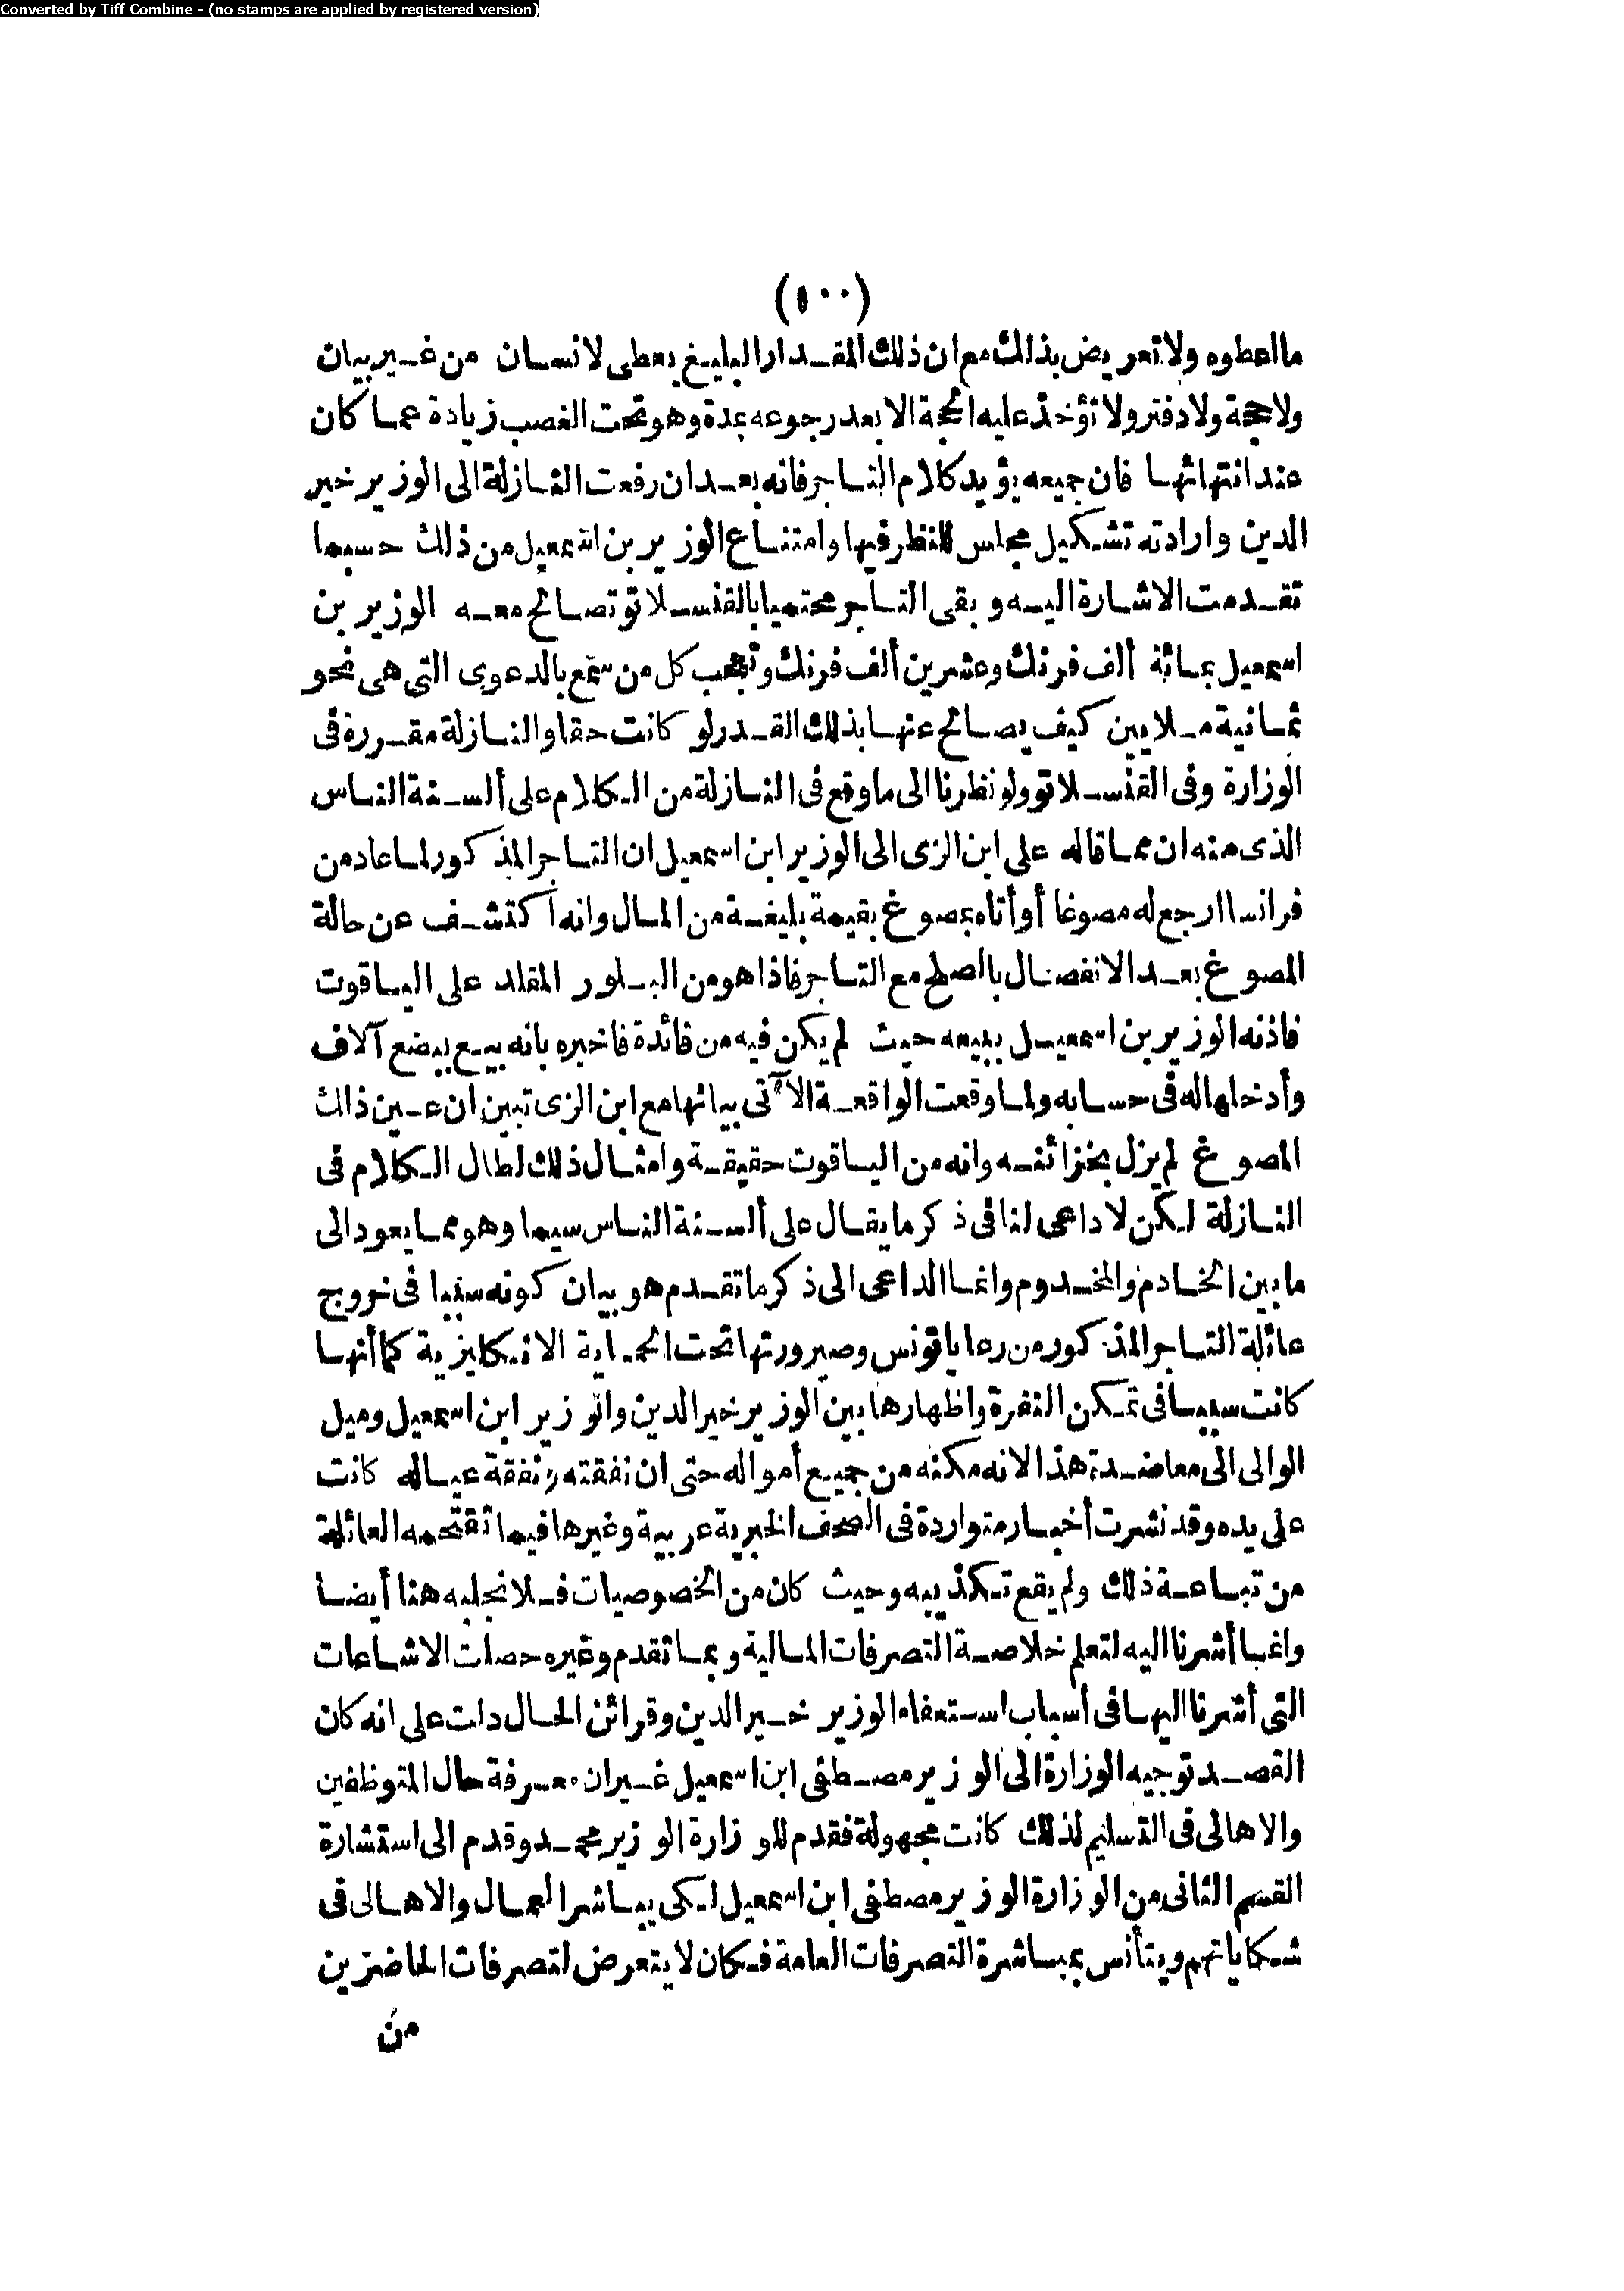 Converted by Tiff Combine - (no stamps are applied by registered version)
(٥٠٠)
ما اعطوه ولا تعريض بذلك مع ان ذلك المقدار البليغ يعطى لانسان من غير بيان
ولا حجة ولا دفتر ولا تؤخذ عليه الحجة الا بعد رجوعه بمدة وهو تحت الغصب زيادة عما كان
عند انتهائها فان جميعه يؤيد كلام التاجر فانه بعد ان رفعت النازلة الى الوزير خير
الدين وارادته تشكيل مجلس للنظر فيها وامتناع الوزير بن اسمعيل من ذلك حسبما
تقدمت الاشارة اليه وبقى التاجر محتميا بالقنسلاتو تصالح معه الوزير بن
اسمعيل بمائة ألف فرنك وعشرين ألف فرنك وتعجب كل من سمع بالدعوى التى هى نحو
ثمانية ملايين كيف يصالح عنها بذلك القدر لو كانت حقا والنازلة مقررة فى
الوزارة وفى القنسلاتو ولو نظرنا الى ما وقع فى النازلة من الكلام على ألسنة الناس
الذى منه ان مما قاله على ابن الزى الى الوزير ابن اسمعيل ان التاجر المذكور لما عاد من
فرانسا ارجع له مصوغا أو أتاه بمصوغ بقيمة بليغة من المال وانه اكتشف عن حالة
المصوغ بعد الانفصال بالصلح مع التاجر فاذا هو من البلور المقلد على الياقوت
فاذنه الوزير بن اسمعيل ببيعه حيث لم يكن فيه من فائدة فاخبره بانه بيع ببضع آلاف
وأدخلها له فى حسابه ولما وقعت الواقعة الآتى بيانها مع ابن الزى تبين ان عين ذلك
المصوغ لم يزل بخزائنه وانه من الياقوت حقيقة وامثال ذلك لطال الكلام فى
النازلة لكن لا داعى لنا فى ذكر ما يقال على ألسنة الناس سيما وهو مما يعود الى
ما بين الخادم والمخدوم وانما الداعى الى ذكر ما تقدم هو بيان كونه سببا فى خروج
عائلة التاجر المذكور من رعايا تونس وصيرورتها تحت الحماية الانكليزية كما أنها
كانت سببا فى تمكن النفرة واظهارها بين الوزير خير الدين والوزير ابن اسمعيل وميل
الوالى الى معاضدة هذا لانه مكنه من جميع أمواله حتى ان نفقته ونفقة عياله كانت
على يده وقد نشرت أخبار متواردة فى الصحف الخبرية عربية وغيرها فيما تقتحمه العائلة
من تباعة ذلك ولم يقع تكذيبه وحيث كان من الخصوصيات فلا نجلبه هنا أيضا
وانما أشرنا اليه لتعلم خلاصة التصرفات المالية وبما تقدم وغيره حصلت الاشاعات
التى أشرنا اليها فى أسباب استعفاء الوزير خير الدين وقرائن الحال دلت على انه كان
القصد توجيه الوزارة الى الوزير مصطفى ابن اسمعيل غير ان معرفة حال المتوظفين
والاهالى فى التسليم لذلك كانت مجهولة فقدم للوزارة الوزير محمد وقدم الى استشارة
القسم الثانى من الوزارة الوزير مصطفى ابن اسمعيل لكى يباشر العمال والاهالى فى
شكاياتهم ويتأنس بمباشرة التصرفات العامة فكان لا يتعرض لتصرفات الحاضرين
من